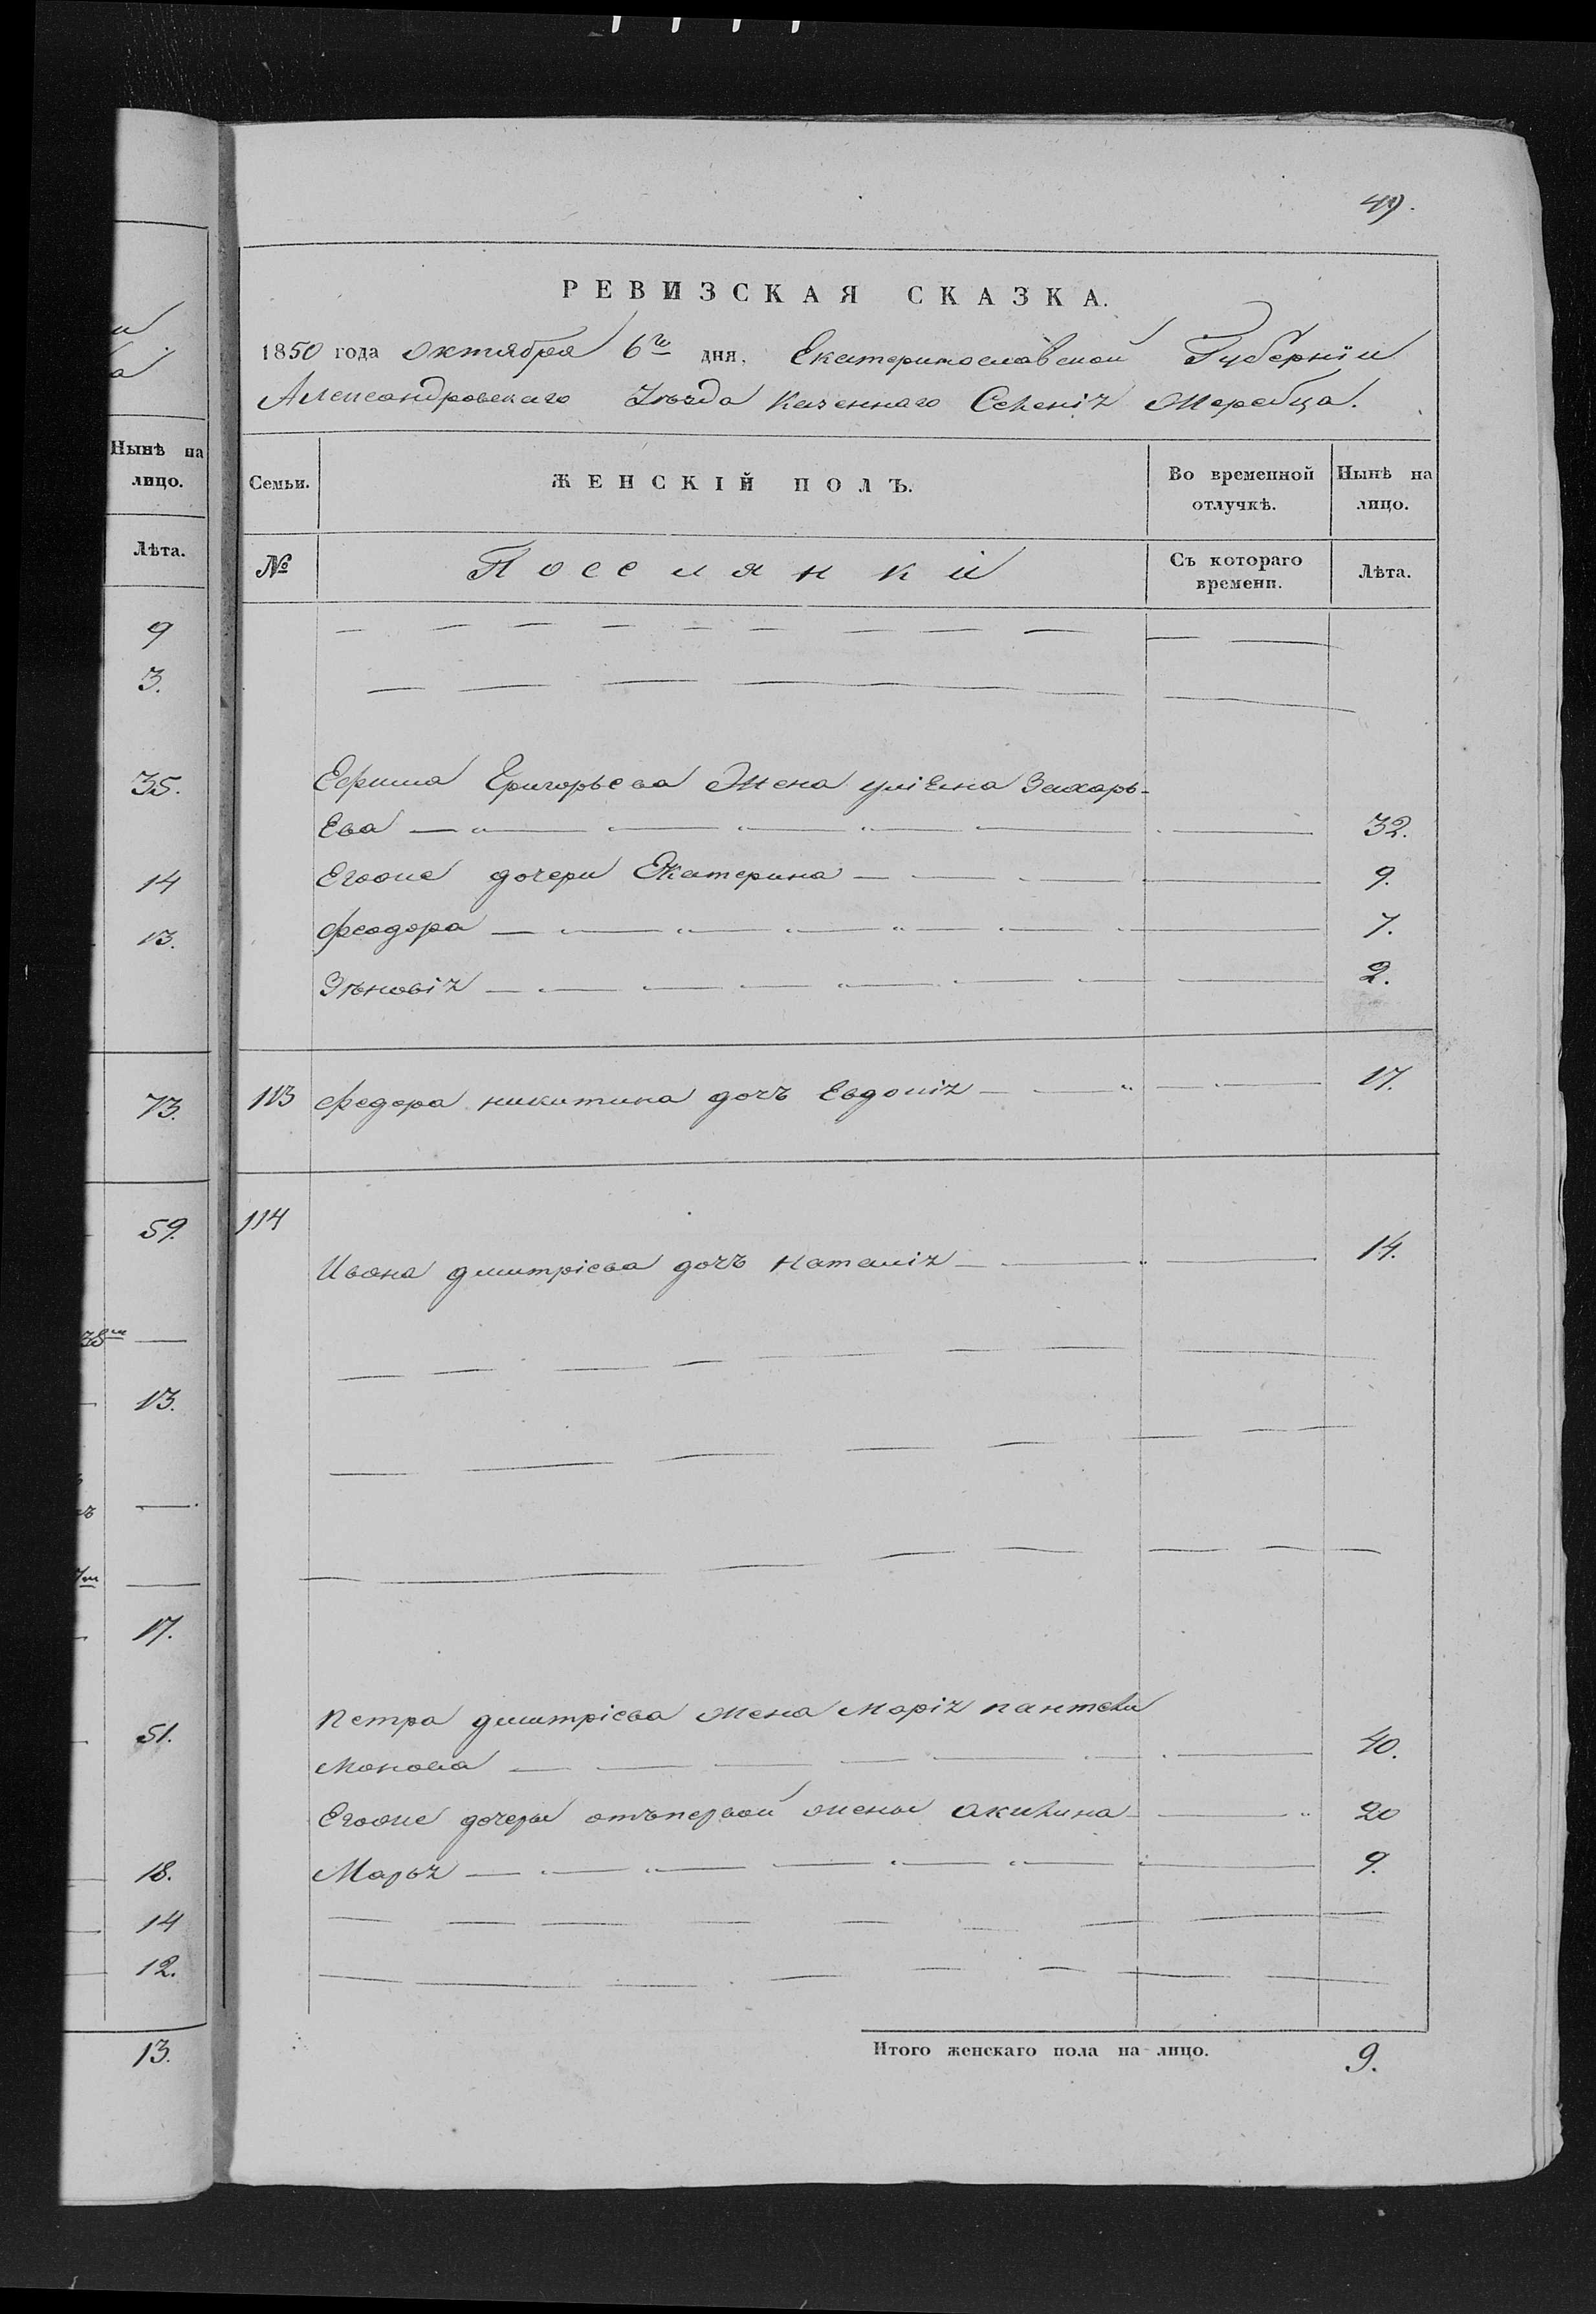 49.
РЕВИЗСКАЯ СКАЗКА.
1850 года октября 6го дня, Екатеринославской Губерніи
Александровскаго Уѣзда Казеннаго Селенія Жеребца.
Нынѣ на лицо.
Семьи. ЖЕНСКІЙ ПОЛЪ. Во временной отлучкѣ. Нынѣ на лицо.
Лѣта.
№ Посслянки Съ котораго времени. Лѣта.
9
3.
35.
Ефима Григорьева Жена Захарь-
Ева 32.
14
Егоже дочери Екатерина 9.
13.
Феодора 7.
Зѣновія 2.
73.
113 Федора никитина дочь Евдокія 17.
59.
114
Ивана дмитріева дочь Наталія 14.
13.
17.
51.
Петра дмитріева жена Марія пантели
монова 40.
Егоже дочеры отъ первой жены акилина 20
18.
Марья 9.
14
12.
13.
Итого женскаго пола на лицо. 9.